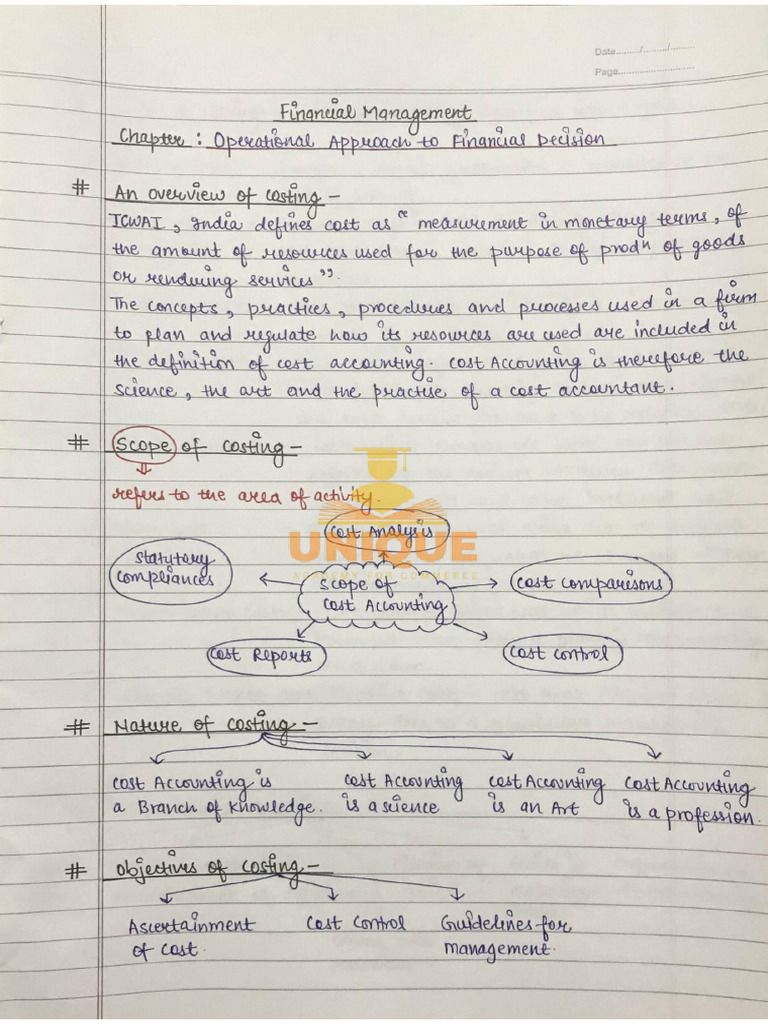 Date........./........./.........
Page............................
Financial Management
Chapter : Operational Approach to Financial Decision
# An overview of costing -
ICWAI, India defines cost as " measurement in monetary terms, of
the amount of resources used for the purpose of prodn of goods
or rendering services".
The concepts, practices, procedures and processes used in a firm
to plan and regulate how its resources are used are included in
the definition of cost accounting. Cost Accounting is therefore the
science, the art and the practise of a cost accountant.
# Scope of costing -
refers to the area of activity.
Cost Analysis
UNIQUE
ACADEMY FOR COMMERCE
Statutory
compliances
Scope of
cost Accounting
cost comparisons
Cost Reports
cost control
# Nature of costing -
Cost Accounting is
a Branch of Knowledge.
cost Accounting
is a science
cost Accounting
is an Art
Cost Accounting
is a profession.
# Objectives of costing -
Ascertainment
of cost.
Cost Control
Guidelines for
management.